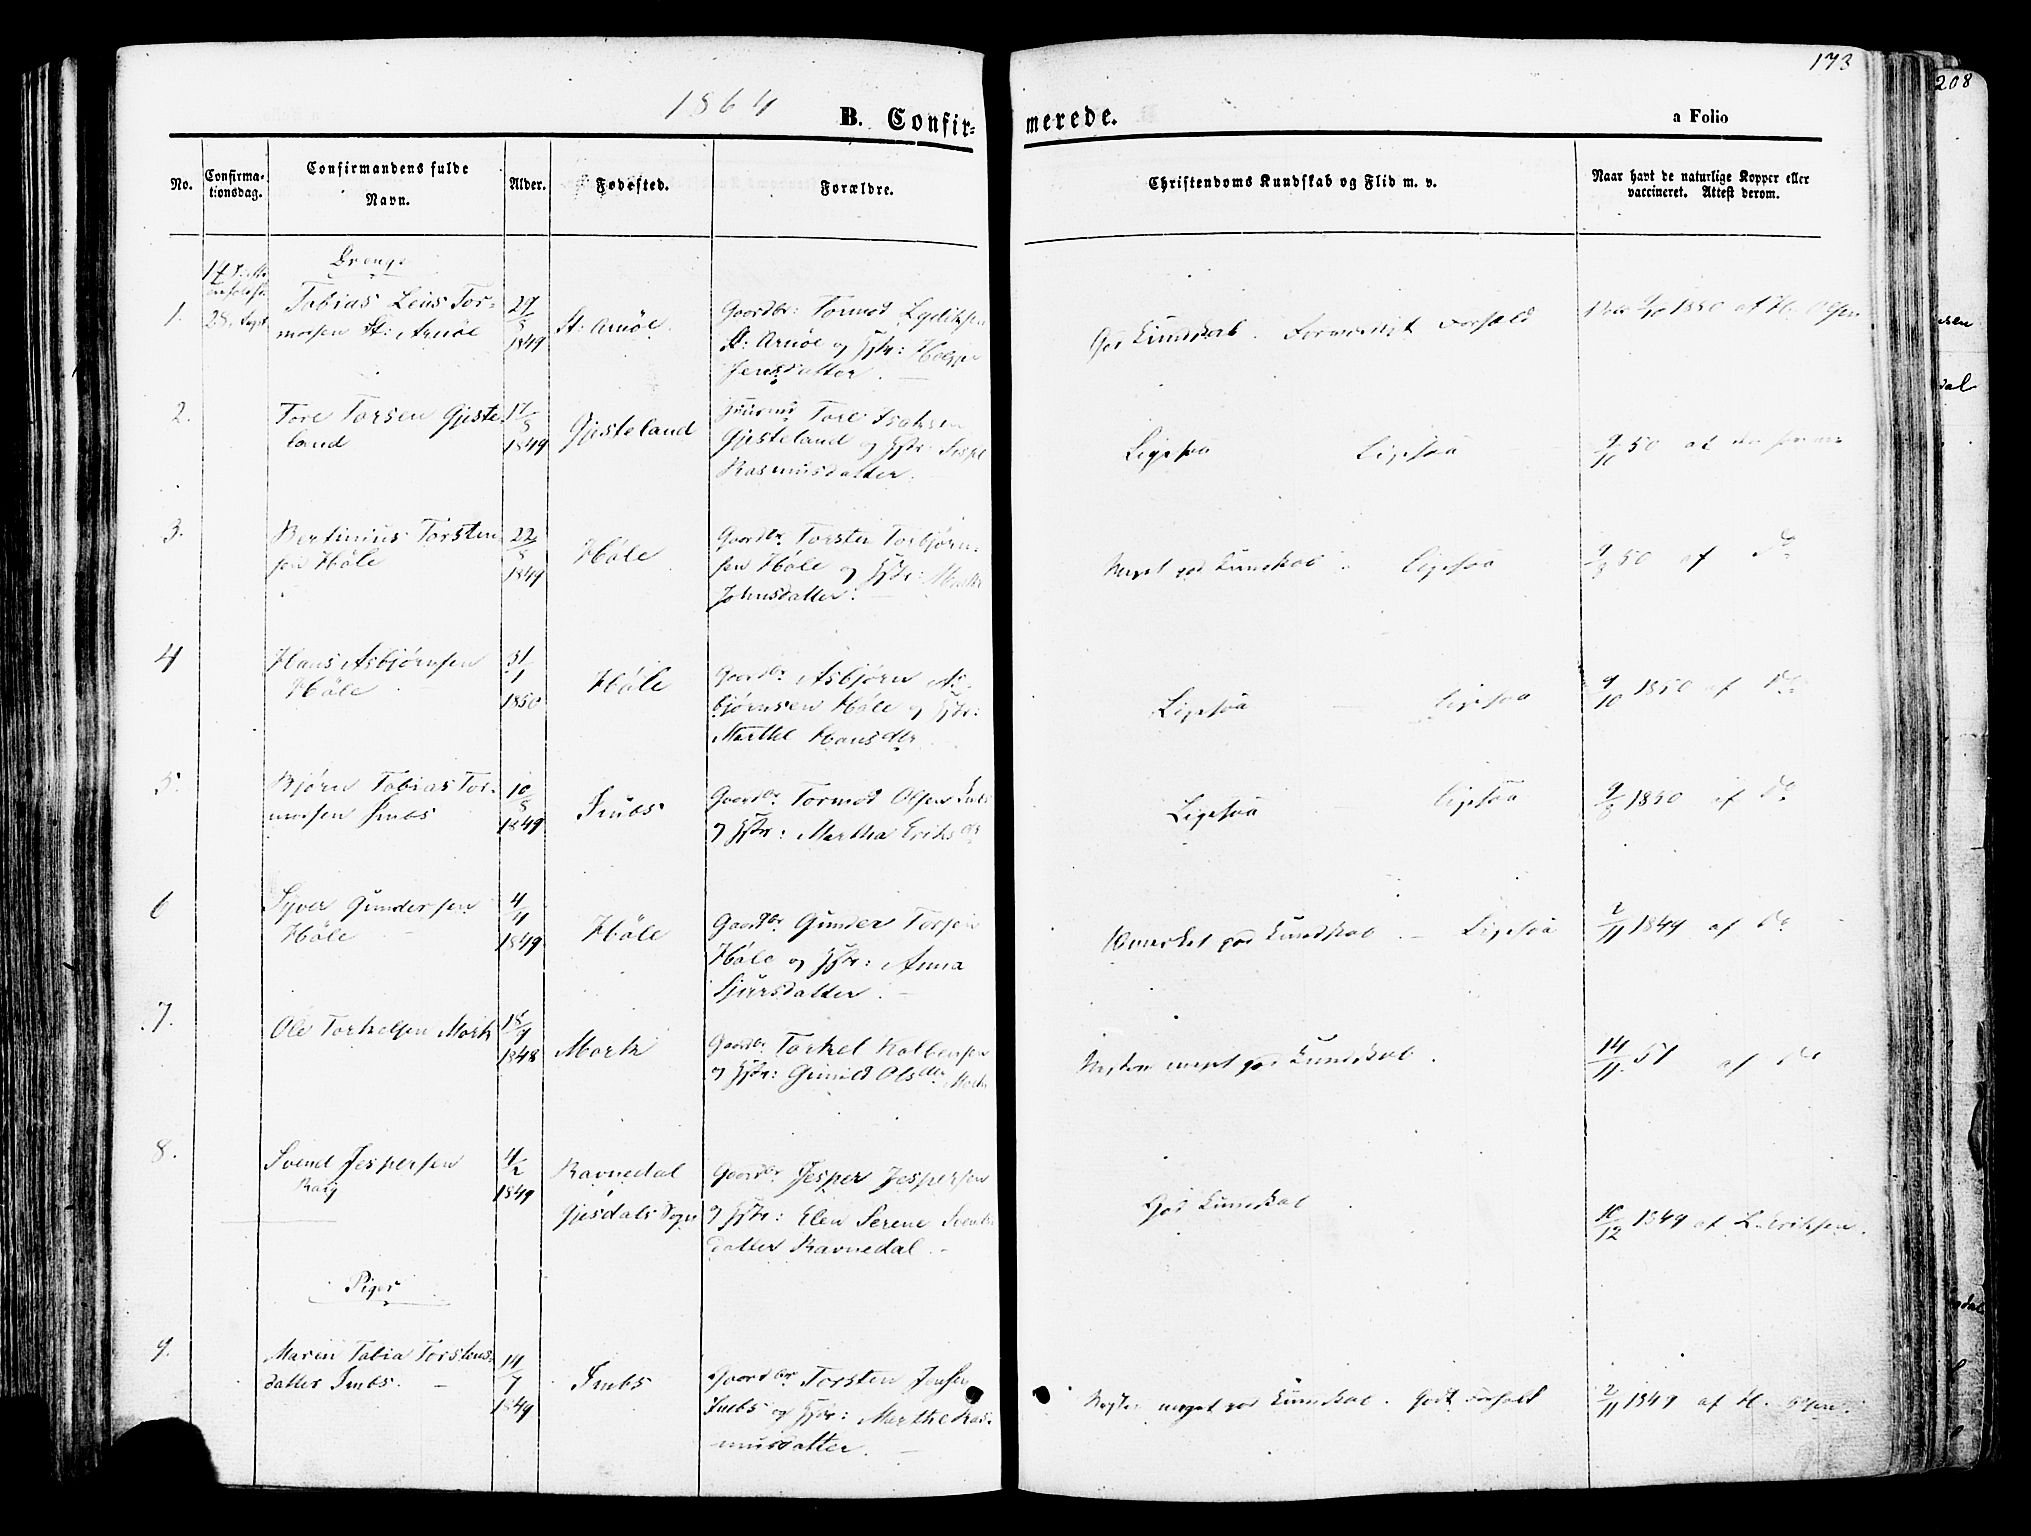 173
208
1864
B. Confir-
merede.
a Folio
No.
Confirma-
tionsdag.
Confirmandens fulde
Navn.
Alder.
Fødested.
Forældre.
Christendoms Kundskab og Flid m. v.
Naar havt de naturlige Kopper eller
vaccineret. Attest derom.
Drenge
1.
Tobias Leus Tor-
morsen St: Arnöe
29/5
1849
St: Arnöe.
Gaardbr: Tormod Lydiksen
St: Arnöe og Hstr:
Jensdatter.
God Kundskab. Forhold
1850 af H. Olsen
2.
Tore Torsen Gjiste-
land
17/5
1849
Gjisteland
Tore Isaksen
Gjisteland og Hstr:
Rasmusdatter.
Ligesaa Ligesaa
9/10 50 af
3.
Bertinius Torsten
sen Höle
22/5
1849
Höle
Gaardbr Torsten Torbjørn-
sen Höle og Hstr:
Johnsdatter.
Meget god Kundskab. Ligesaa
50 af Do
4
Hans Asbjørnsen
Höle
31/1
1850
Höle
Gaardbr Asbjørn As-
bjørnsen Höle og Hstr:
Marthe Hansdtr
Ligesaa Ligesaa
9/10 1850 af Do
5.
Bjørn Tobias Tor-
morsen Imbs
10/5
1849
Imbs
Gaardbr Tormod Olsen Imbs
og Hstr: Martha Eriksdtr
Ligesaa Ligesaa
1850 af Do
6
Sjver Gundersen
Höle
4/4
1849
Höle
Gaardbr Gunder Torsen
Höle og Hstr: Anna
Sjursdatter.
god Kundskab. Ligesaa
2/11 1849 af Do
7.
Ole Torkelsen Mork
1848
Mork
Gaardbr Torkel Kolbensen
og Hstr: Gunild Olsdtr Mork
Næsten meget god Kundskab.
14/11 51 af Do
8.
Svend Jespersen
4/2
1849
Ravnedal
Gjesdals Sogn
Gaardbr Jesper Jespersen
og Hstr: Elen Serene Svends
datter Ravnedal.
God Kundskab
10/12 1849 af L. Eriksen.
Piger
9.
Maren Tobia Torstens-
datter Imbs.
14/7
1849
Imbs
Gaardbr Torsten Jensen
Imbs og Hstr: Marthe Ras-
musdatter.
Næsten meget god Kundskab. Godt Forhold
2/11 1849 af H. Olsen